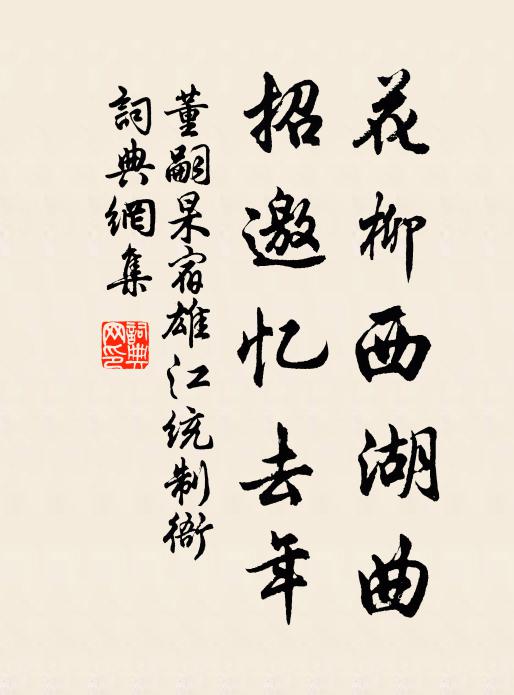 花柳西湖曲
招邀忆去年
董嗣杲宿雄江統制衙
詞典網集
詞典網印